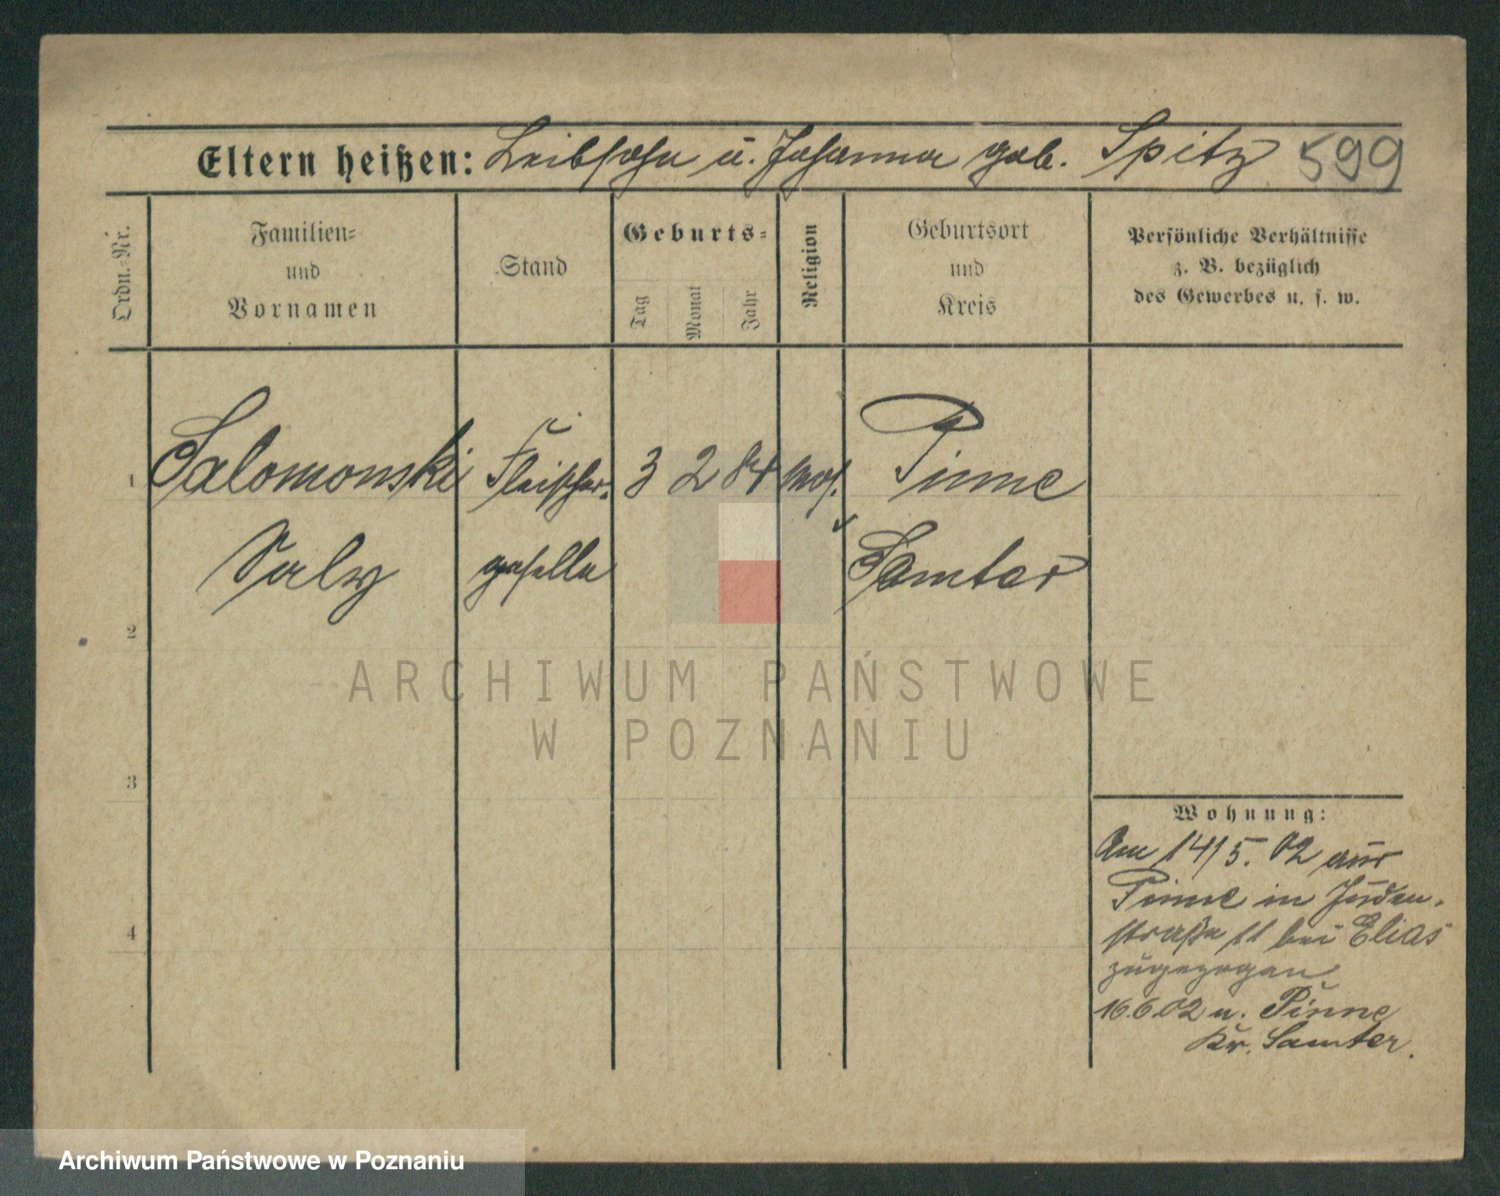 Eltern heißen: Leibsohn u. Johanna geb. Spitz 599
Ordn.-Nr.
Familien-
und
Vornamen
Stand
Geburts-
Tag
Monat
Jahr
Religion
Geburtsort
und
Kreis
Persönliche Verhältnisse
z. B. bezüglich
des Gewerbes u. s. w.
1 Salomonski Fleischer- 3 2 84 mos. Pinne
Saly geselle Samter
2
3
4
ARCHIWUM PAŃSTWOWE
W POZNANIU
Wohnung:
Am 14/5. 02 aus
Pinne in Juden-
straße 11 bei Elias
zugezogen
16.6.02 n. Pinne
Kr. Samter.
Archiwum Państwowe w Poznaniu